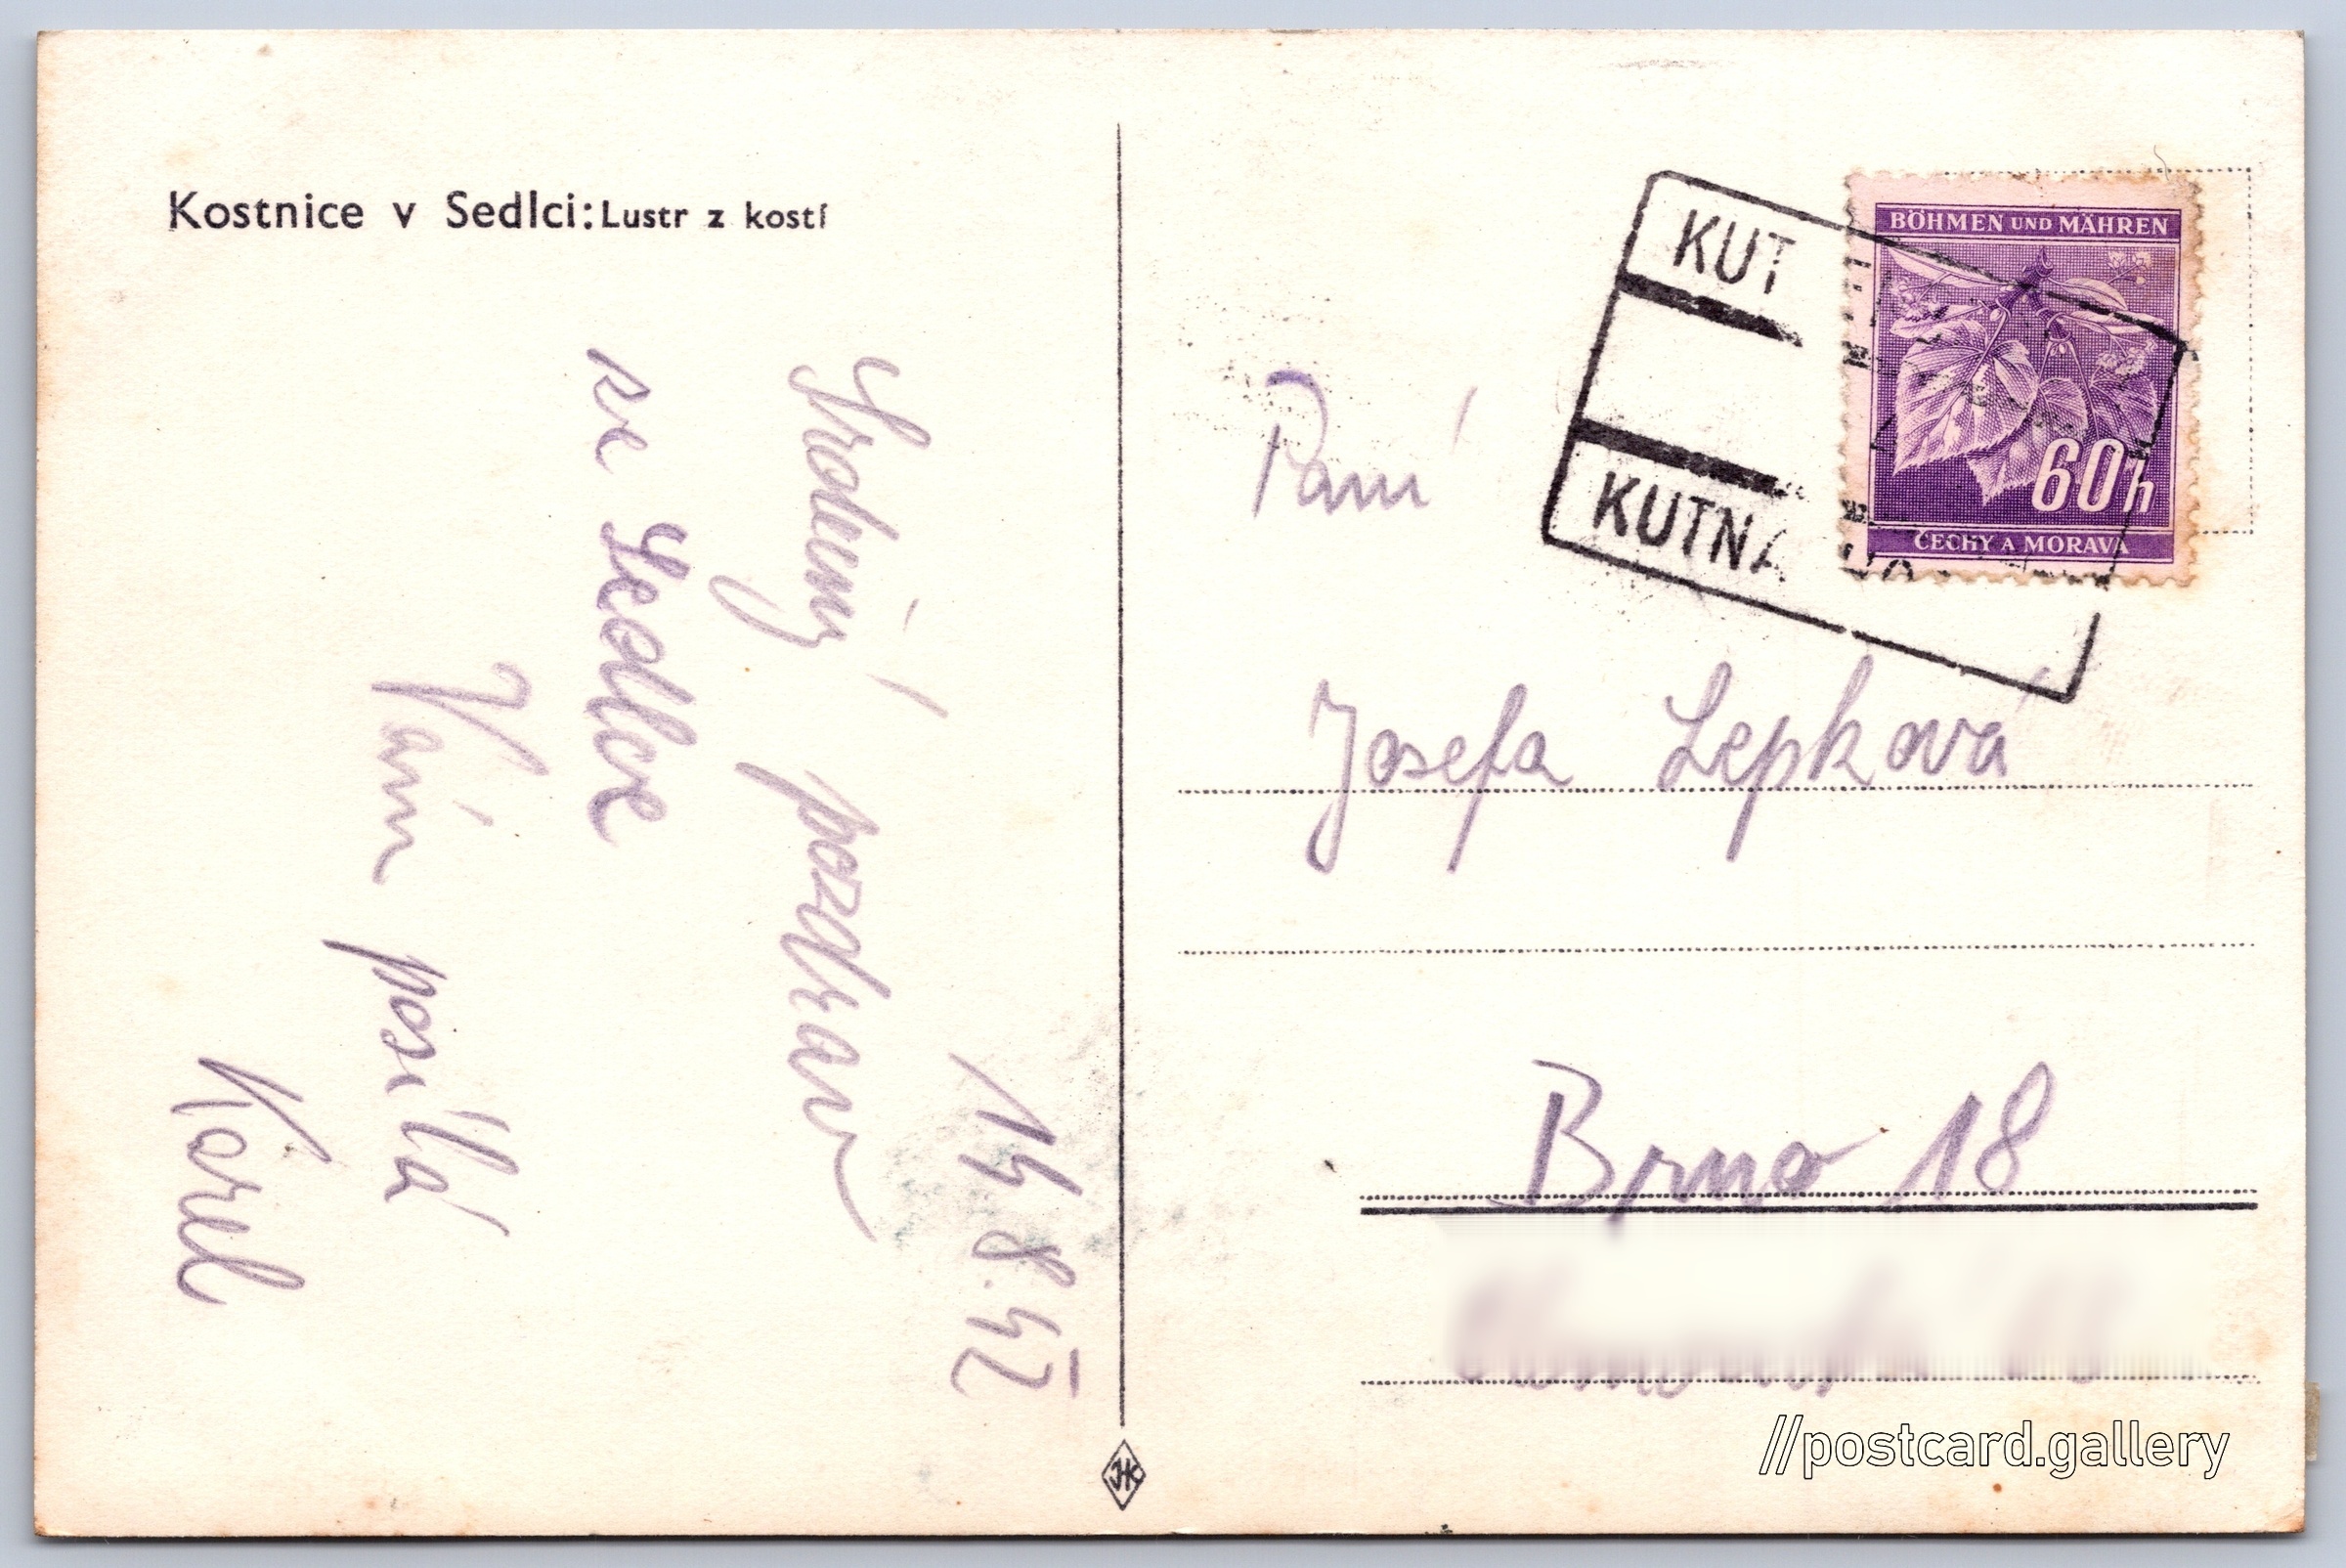 Kostnice v Sedlci: Lustr z kostí
14. 8. 42
Srdečný pozdrav
ze Sedlce
Vám posílá
Karel
BÖHMEN UND MÄHREN
60h
ČECHY A MORAVA
KUT
KUTNÁ HO
Paní
Josefa Lepková
Brno 18
JHK
//postcard.gallery